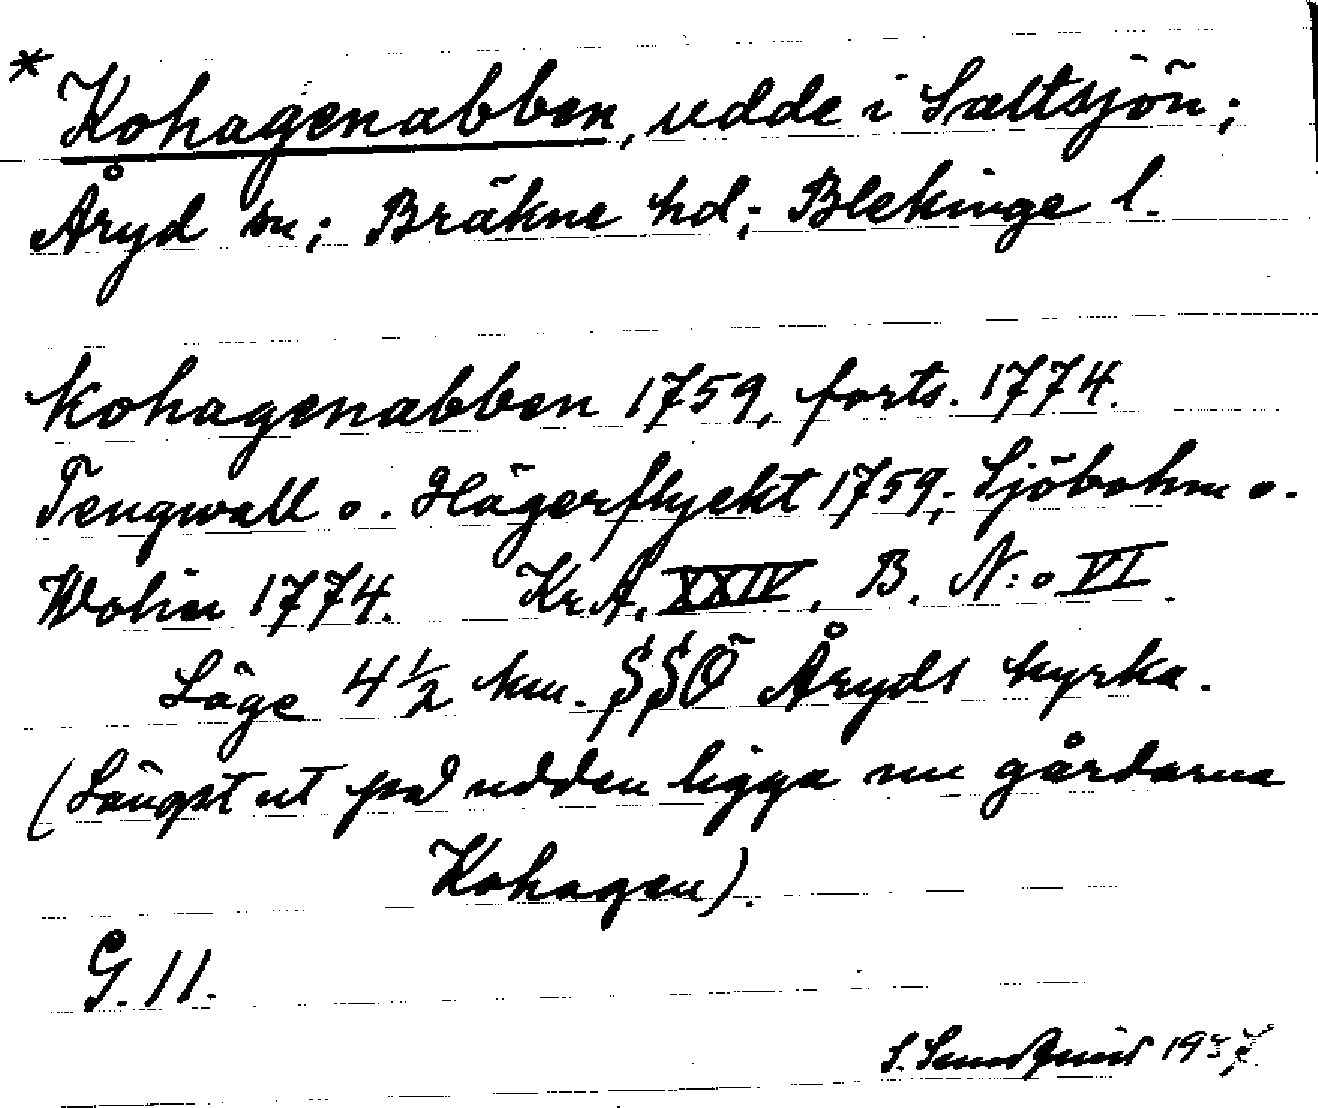 * Kohagenabben, udde i Saltsjön;
Åryd sn; Bräkne hd; Blekinge l.
Kohagenabben 1759, forts. 1774.
Tengwall o. Hägerflyckt 1759; Sjöbohm o.
Wohin 1774. Kr.A. XXIV, B. N:o VI.
Läge 4 1/2 km. SSÖ Åryds kyrka.
(Längst ut på udden ligga nu gårdarna
Kohagen).
G. 11.
S. 1937